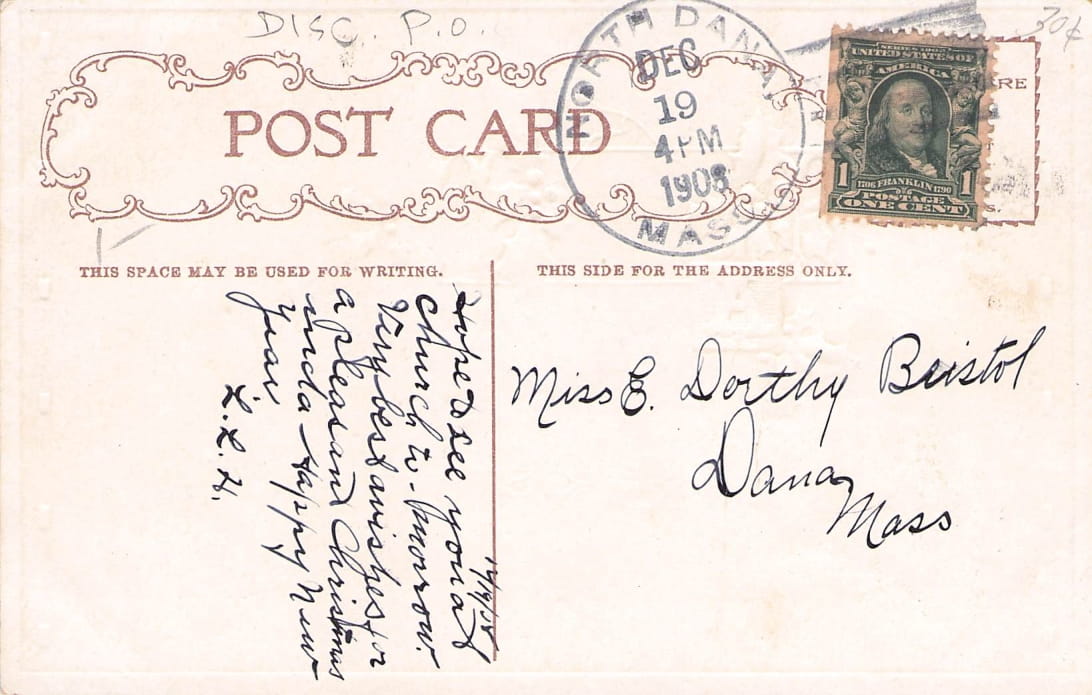 DISC. P.O.
30¢
POST CARD
NORTH DANA,
DEC
19
4 PM
1908
MASS.
SERIES 1902
UNITED STATES OF
AMERICA
1706 FRANKLIN 1790
1 1
POSTAGE
ONE CENT
THIS SPACE MAY BE USED FOR WRITING.
THIS SIDE FOR THE ADDRESS ONLY.
12/19/08
Hope to see you at
church to-morrow.
Very best wishes for
a pleasant Christmas
and a Happy New
Year
L. L. H.
Miss E. Dorthy Bristol
Dana
Mass